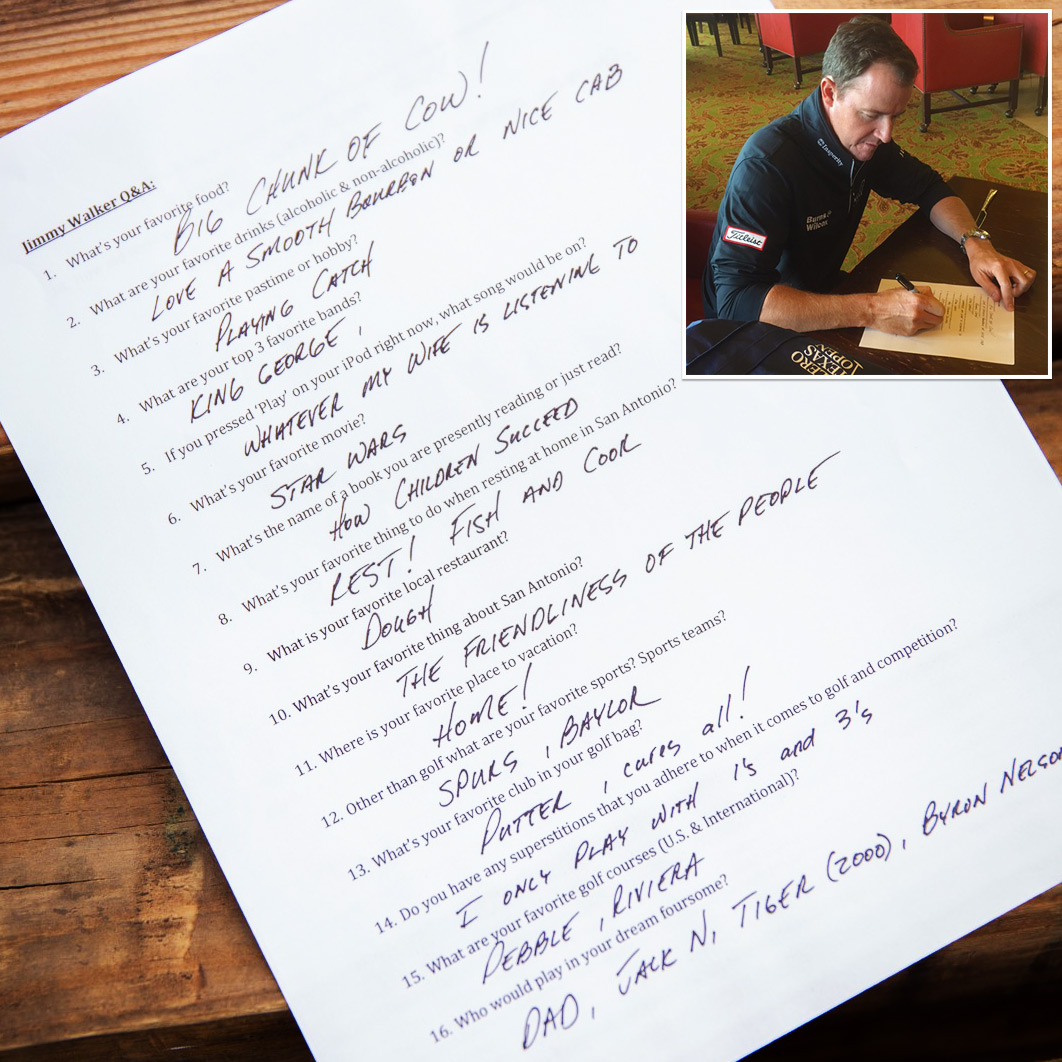 Jimmy Walker Q&A:
1. What's your favorite food?
BIG CHUNK OF COW!
2. What are your favorite drinks (alcoholic & non-alcoholic)?
LOVE A SMOOTH BOURBON OR NICE CAB
3. What's your favorite pastime or hobby?
PLAYING CATCH
4. What are your top 3 favorite bands?
KING GEORGE,
5. If you pressed 'Play' on your iPod right now, what song would be on?
WHATEVER MY WIFE IS LISTENING TO
6. What's your favorite movie?
STAR WARS
7. What's the name of a book you are presently reading or just read?
HOW CHILDREN SUCCEED
8. What's your favorite thing to do when resting at home in San Antonio?
REST! FISH AND COOK
9. What is your favorite local restaurant?
DOUGH
10. What's your favorite thing about San Antonio?
THE FRIENDLINESS OF THE PEOPLE
11. Where is your favorite place to vacation?
HOME!
12. Other than golf what are your favorite sports? Sports teams?
SPURS, BAYLOR
13. What's your favorite club in your golf bag?
PUTTER, cures all!
14. Do you have any superstitions that you adhere to when it comes to golf and competition?
I ONLY PLAY WITH 1's and 3's
15. What are your favorite golf courses (U.S. & International)?
PEBBLE, RIVIERA
16. Who would play in your dream foursome?
DAD, JACK N, TIGER (2000), BYRON NELSON
Insperity
Burns &
Wilcox
Titleist
VALERO
TEXAS
OPEN